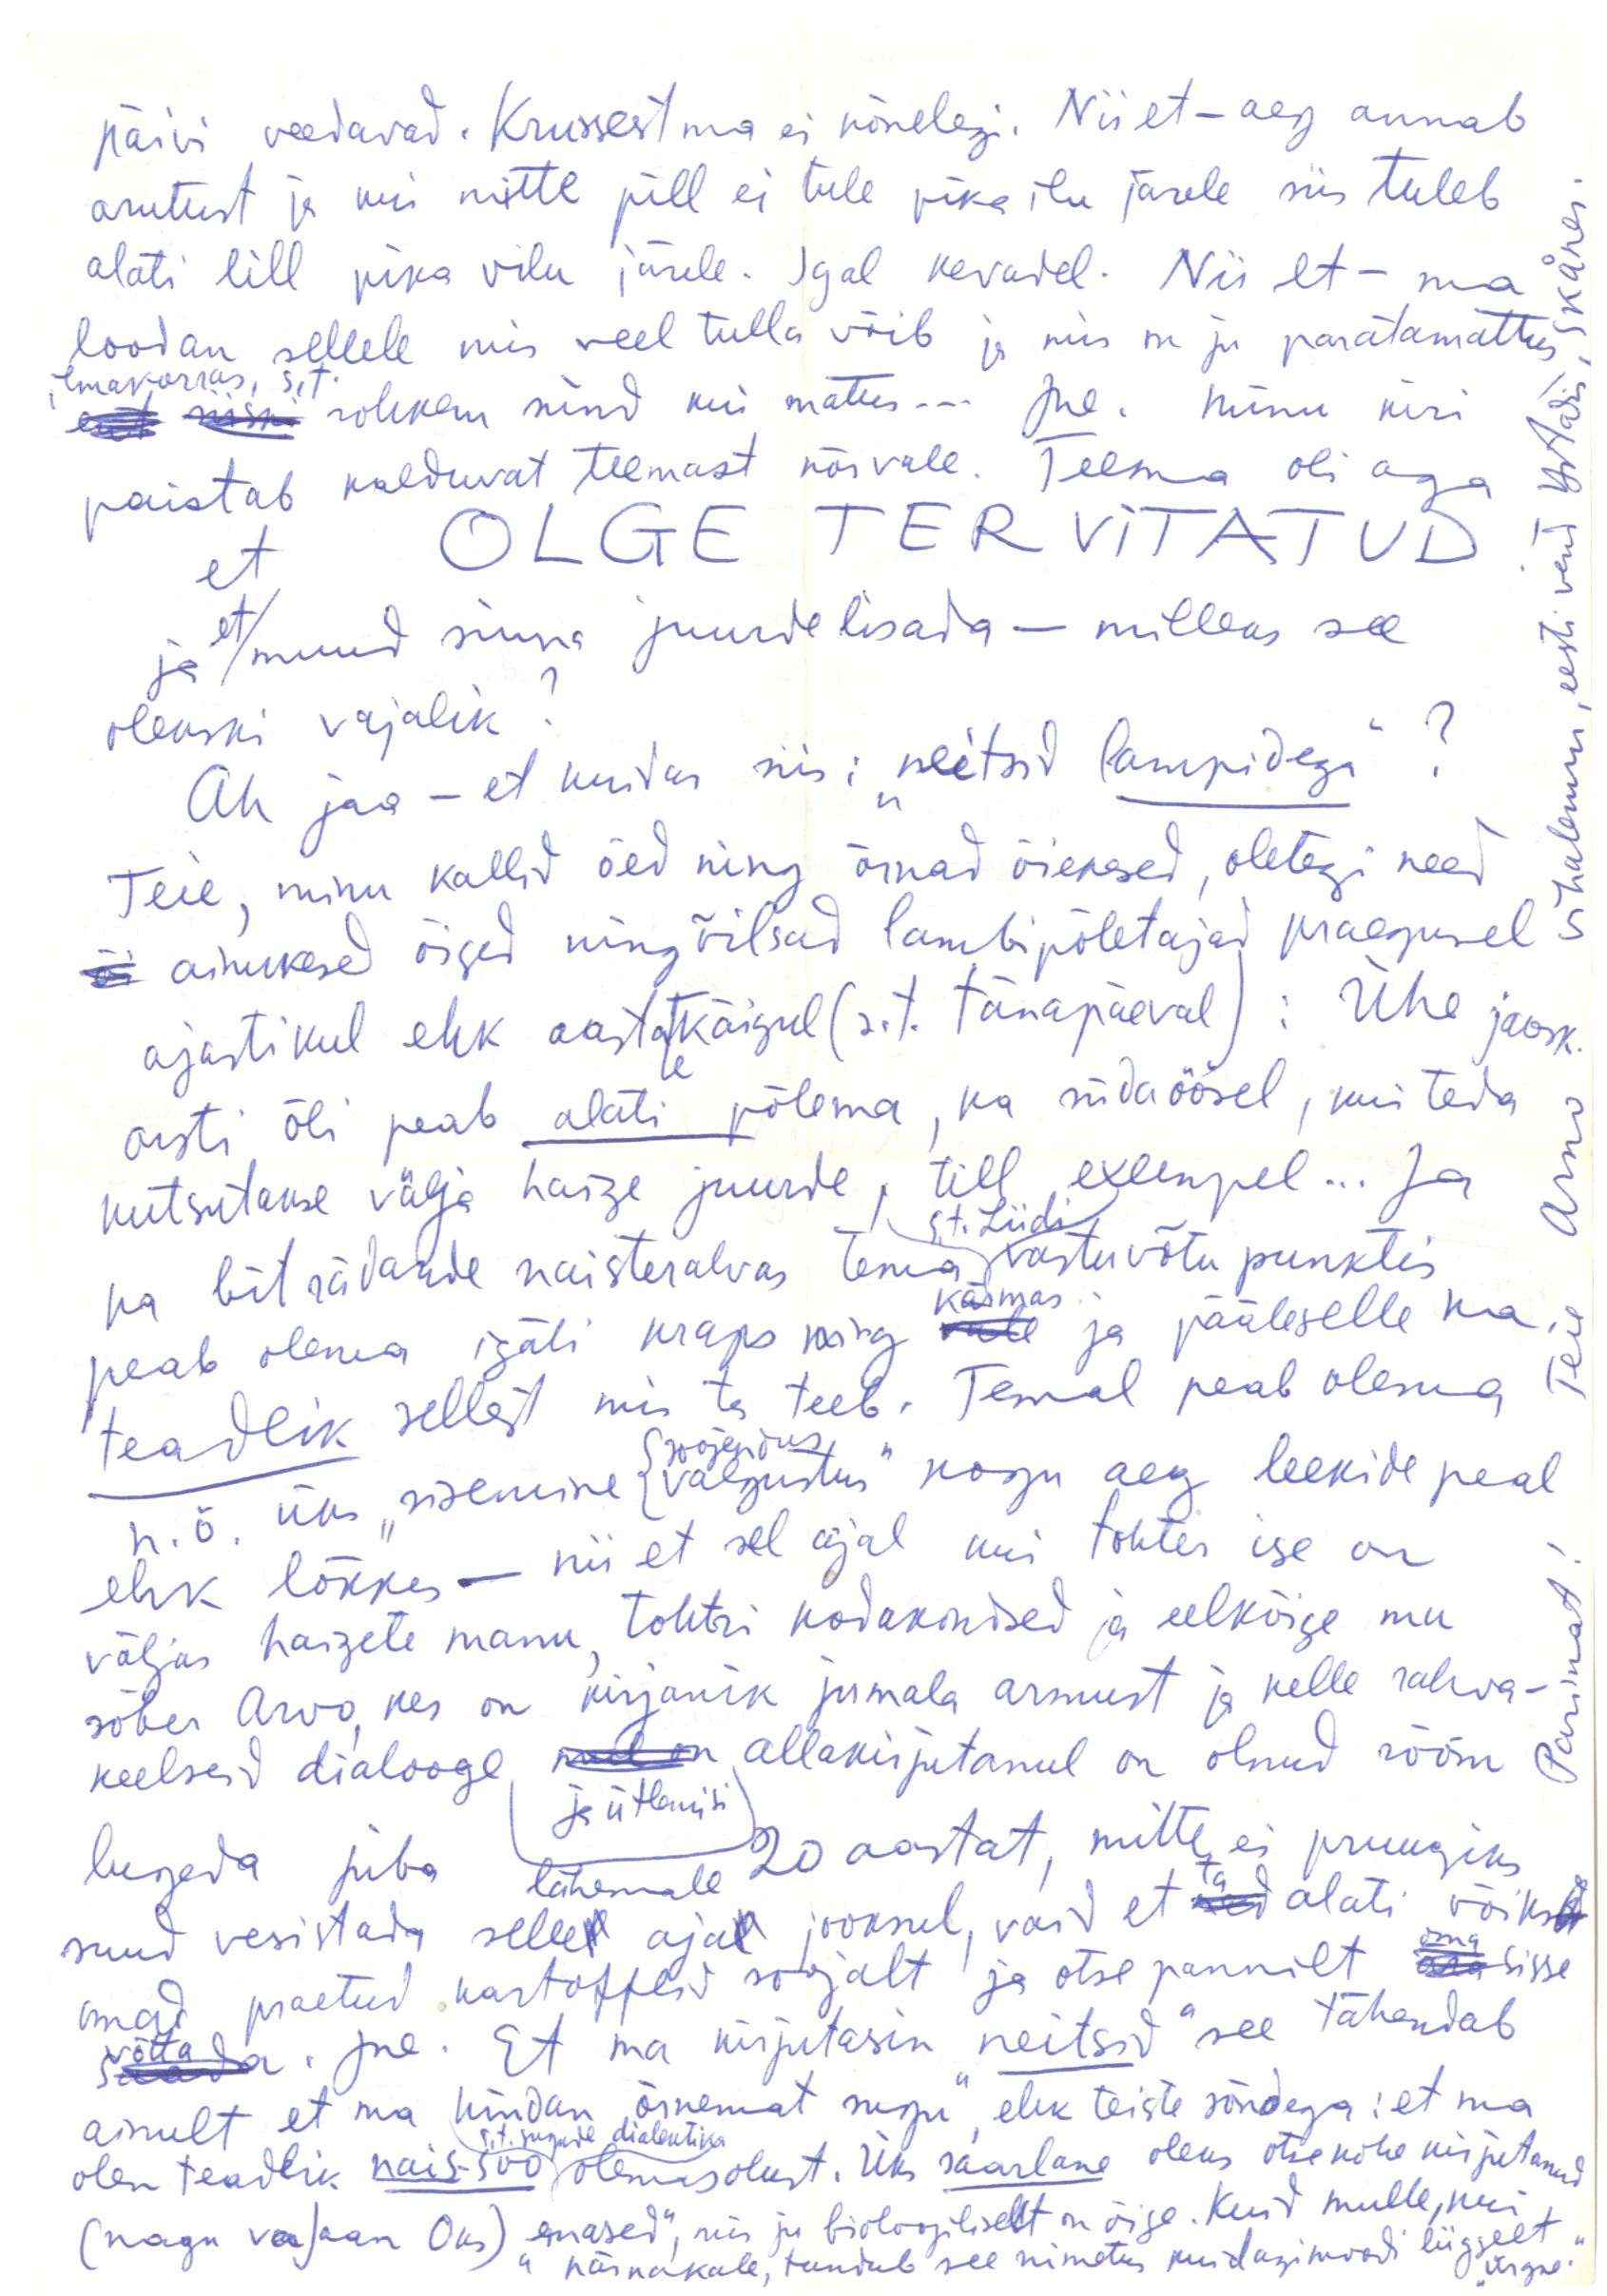 päivi veedavad. Krussest ma ei kõnelegi. Nii et – aeg annab
arutust ja kui mitte pill ei tule pika ilu järele siis tuleb
alati lill pika vilu järele. Igal kevadel. Nii et – ma
loodan sellele mis veel tulla võib ja mis on ju paratamattus
ilmakorras, s.t.
rohkem sünd kui mattus... Jne. Minu kiri
paistab kalduvat teemast kõrvale. Teema oli aga
et OLGE TERVITATUD
ja et muud sinna juurde lisada – milleks see
olekski vajalik?
Ah jaa – et kuidas siis: „neitsid lampidega" ?
Teie, minu kallid õed ning õrnad õiekesed, oletegi need
ainukesed õiged ning õilsad lambipõletajad praegusel
ajastikul ehk aastatekäigul (s.t. tänapäeval): Ühe jaosk.
arsti õli peab alati põlema, ka südaöösel, kui teda
kutsutakse välja haige juurde, till exempel... Ja
ka biträdande naisterahvas tema (s.t. Liidi) vastuvõtu punktis
peab olema igati kraps ning kärmas ja pääleselle ka
teadlik sellest mis ta teeb. Temal peab olema
n.ö. üks „sisemine {soojendus valgustus" kogu aeg leekide peal
ehk lõkkes – nii et sel ajal kui tohter ise on
väljas haigete manu, tohtri kodakondsed ja eelkõige mu
sõber Arvo, kes on kirjanik jumala armust ja kelle rahva-
keelseid dialooge (ja ütlemisi) allakirjutanul on olnud rõõm
lugeda juba lähemale 20 aastat, mitte ei pruugiks
suud vesistada selle aja jooksul, vaid et ta alati võiks
omad praetud kartoffleid soojalt ja otse pannilt oma sisse
võtta. Jne. Et ma kirjutasin „neitsid" see tähendab
ainult et ma hindan „õrnemat sugu", ehk teiste sõndega: et ma
olen teadlik nais-soo (s.t. sugude dialektika) olemasolust. Üks saarlane oleks otsekohe kirjutanud
(nagu vanajaan Oks) „emased", mis ju bioloogiliselt on õige. Kuid mulle, kui
närnakale, tundub see nimetus kuidagimoodi liiggselt „ürgne."
Parimat! Teie Arno Vihalemm, eesti vend Ystadis, Skånes.